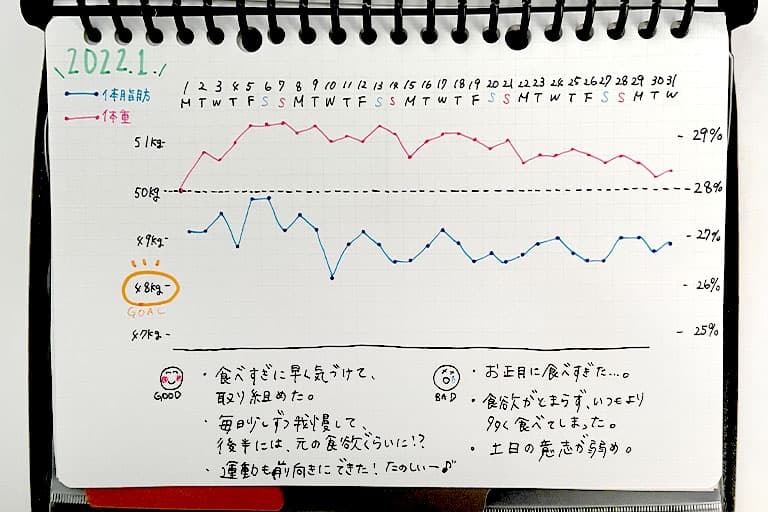 2022.1.
体脂肪
体重
1 2 3 4 5 6 7 8 9 10 11 12 13 14 15 16 17 18 19 20 21 22 23 24 25 26 27 28 29 30 31
M T W T F S S M T W T F S S M T W T F S S M T W T F S S M T W
51kg-
50kg
49kg-
48kg-
GOAL
47kg-
- 29%
- 28%
- 27%
- 26%
- 25%
GOOD
・食べすぎに早く気づけて、
取り組めた。
・毎日少しずつ我慢して、
後半には、元の食欲ぐらいに!?
・運動も前向きにできた!たのしいー♪
BAD
・お正月に食べすぎた…。
・食欲がとまらず、いつもより
多く食べてしまった。
・土日の意志が弱め。